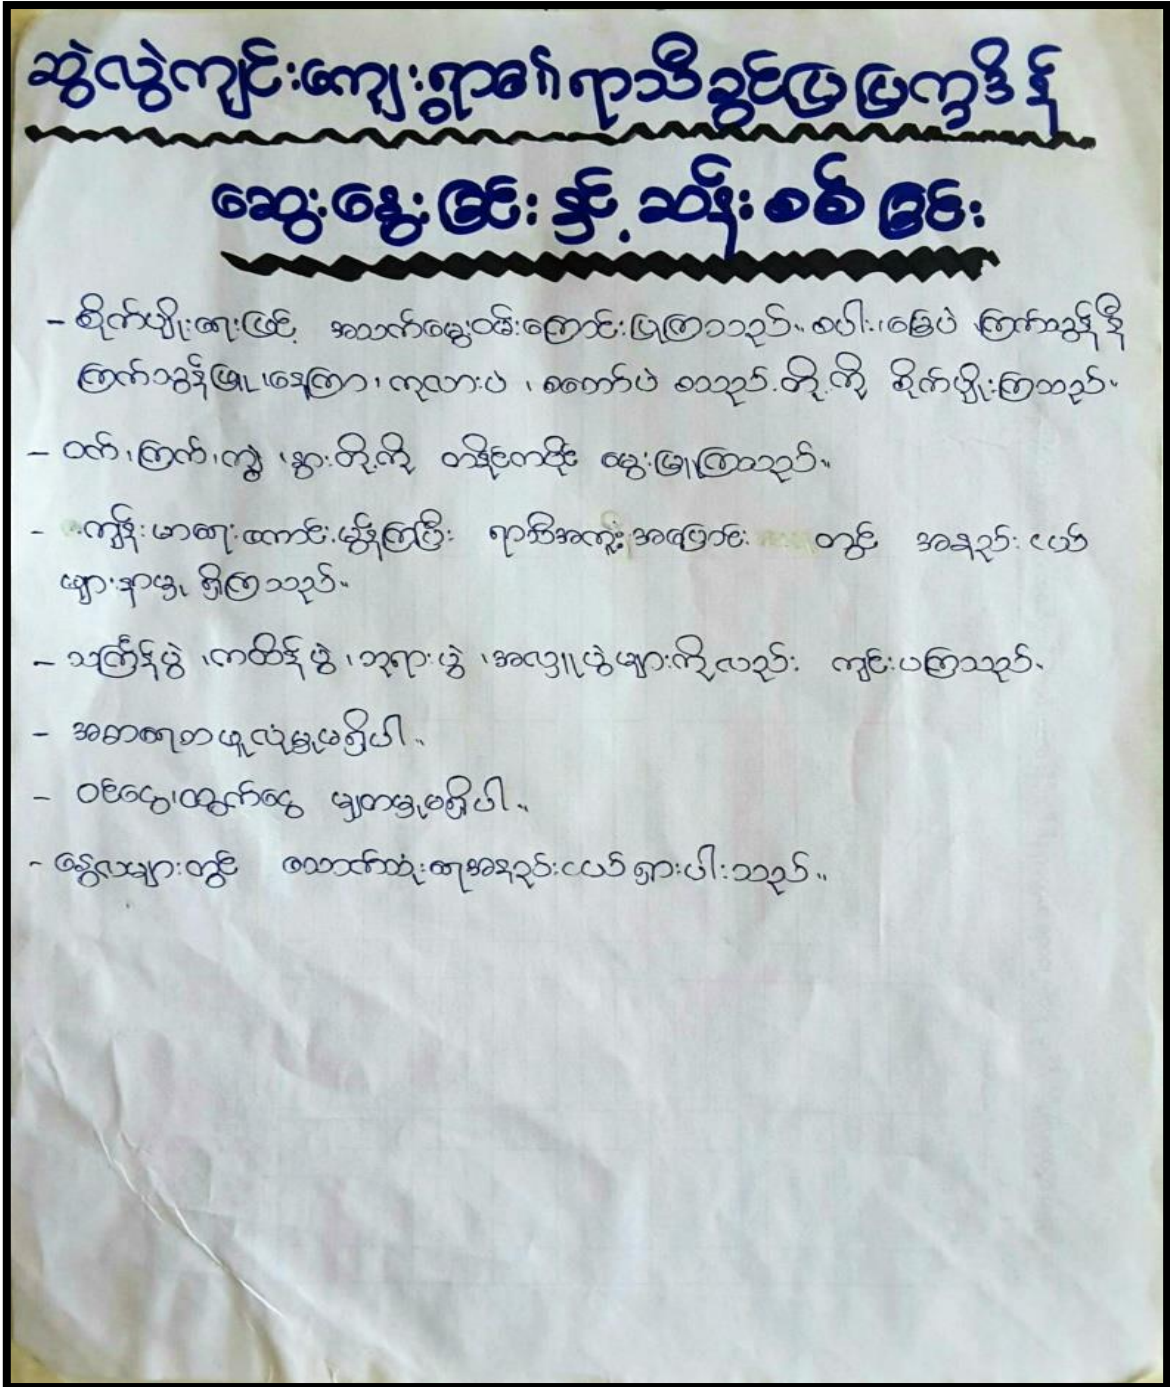 ဆွဲလွဲကျင်းကျေးရွာ၏ရာသီခွင်ပြပြက္ခဒိန်
ဆွေးနွေးခြင်းနှင့်ဆန်းစစ်ခြင်း
- စိုက်ပျိုးရေးဖြင့် အသက်မွေးဝမ်းကြောင်းပြုကြသည်။ စပါး၊မြေပဲ ၊ကြက်သွန်နီ
ကြက်သွန်ဖြူ၊နေကြာ၊ ကုလားပဲ ၊ စတော်ပဲ စသည်တို့ကို စိုက်ပျိုးကြသည်။
- ဝက်၊ကြက်၊ကျွဲ ၊နွားတို့ကို တနိုင်တပိုင် မွေးမြူကြသည်။
- ကျန်းမာရေးကောင်းမွန်ကြပြီး ရာသီအကူးအပြောင်း တွင် အနည်းငယ်
ဖျားနာမှု ရှိကြသည်။
- သင်္ကြန်ပွဲ ၊ကထိန်ပွဲ ၊ဘုရားပွဲ ၊အလှူပွဲများကိုလည်း ကျင်းပကြသည်။
- အစာရေစာဖူလုံမှုမရှိပါ။
- ဝင်ငွေ၊ထွက်ငွေ မျှတမှုမရှိပါ။
- နွေလများတွင် သောက်သုံးရေအနည်းငယ်ရှားပါးသည်။